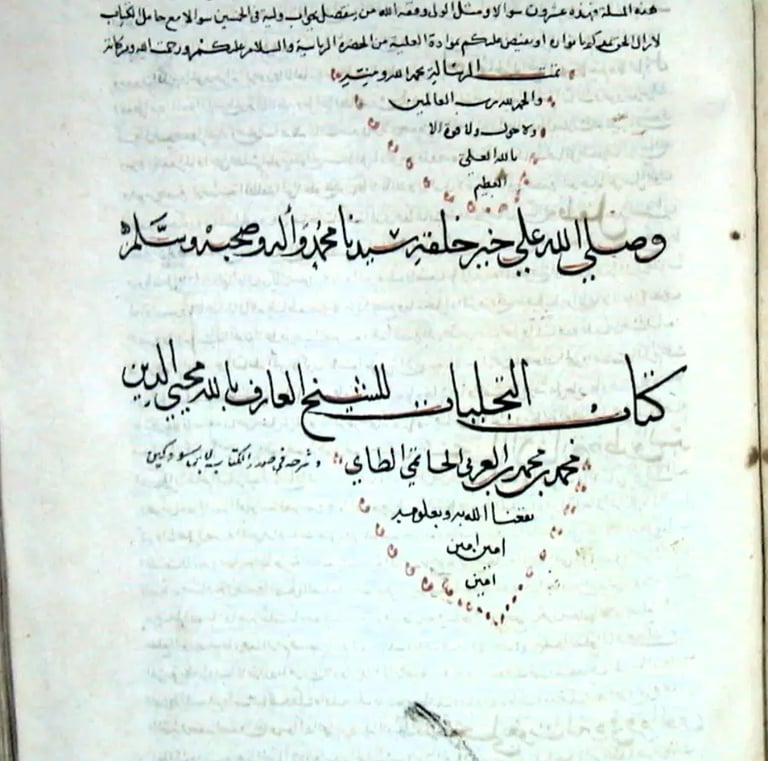 هذه المسلة فهذه عشرون سوالا ومثل الولى وفقه الله من يتفضل بجواب وليه فى الخمسين سوالا مع حامل الكتاب
لازال الحق يمدكم بانواره او يفيض عليكم بمواده العلية من الحضرة الربانية والسلام عليكم ورحمة الله وبركاته
تمت الرسالة بحمد الله ومنته
والحمد لله رب العالمين
ولا حول ولا قوة الا
بالله العلى
العظيم
وصلي الله علي خير خلقه سيدنا محمد وأله وصحبه وسلم
كتاب التجليات للشيخ العارف بالله محيي الدين
محمد بن محمد بن العربي الحاتمي الطاي وشرحه في صدر الكتاب لابن سودكين
نفعنا الله به وبعلومه
امين امين
امين